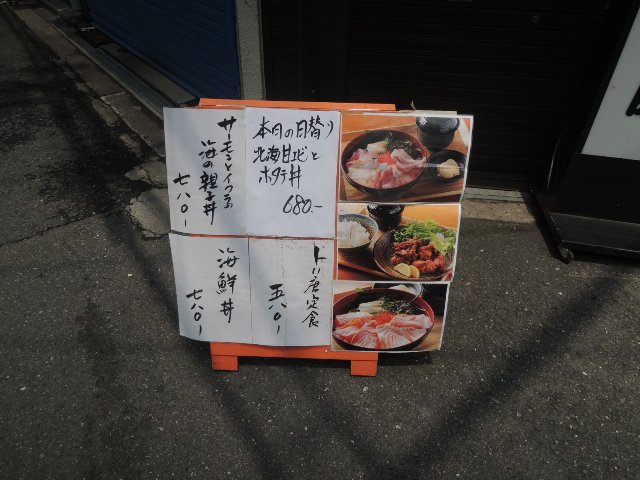 本日の日替り
北海甘エビと
ホタテ丼
680.-
サーモンとイクラの
海の親子丼
七八〇-
トリ唐定食
五八〇-
海鮮丼
七八〇-